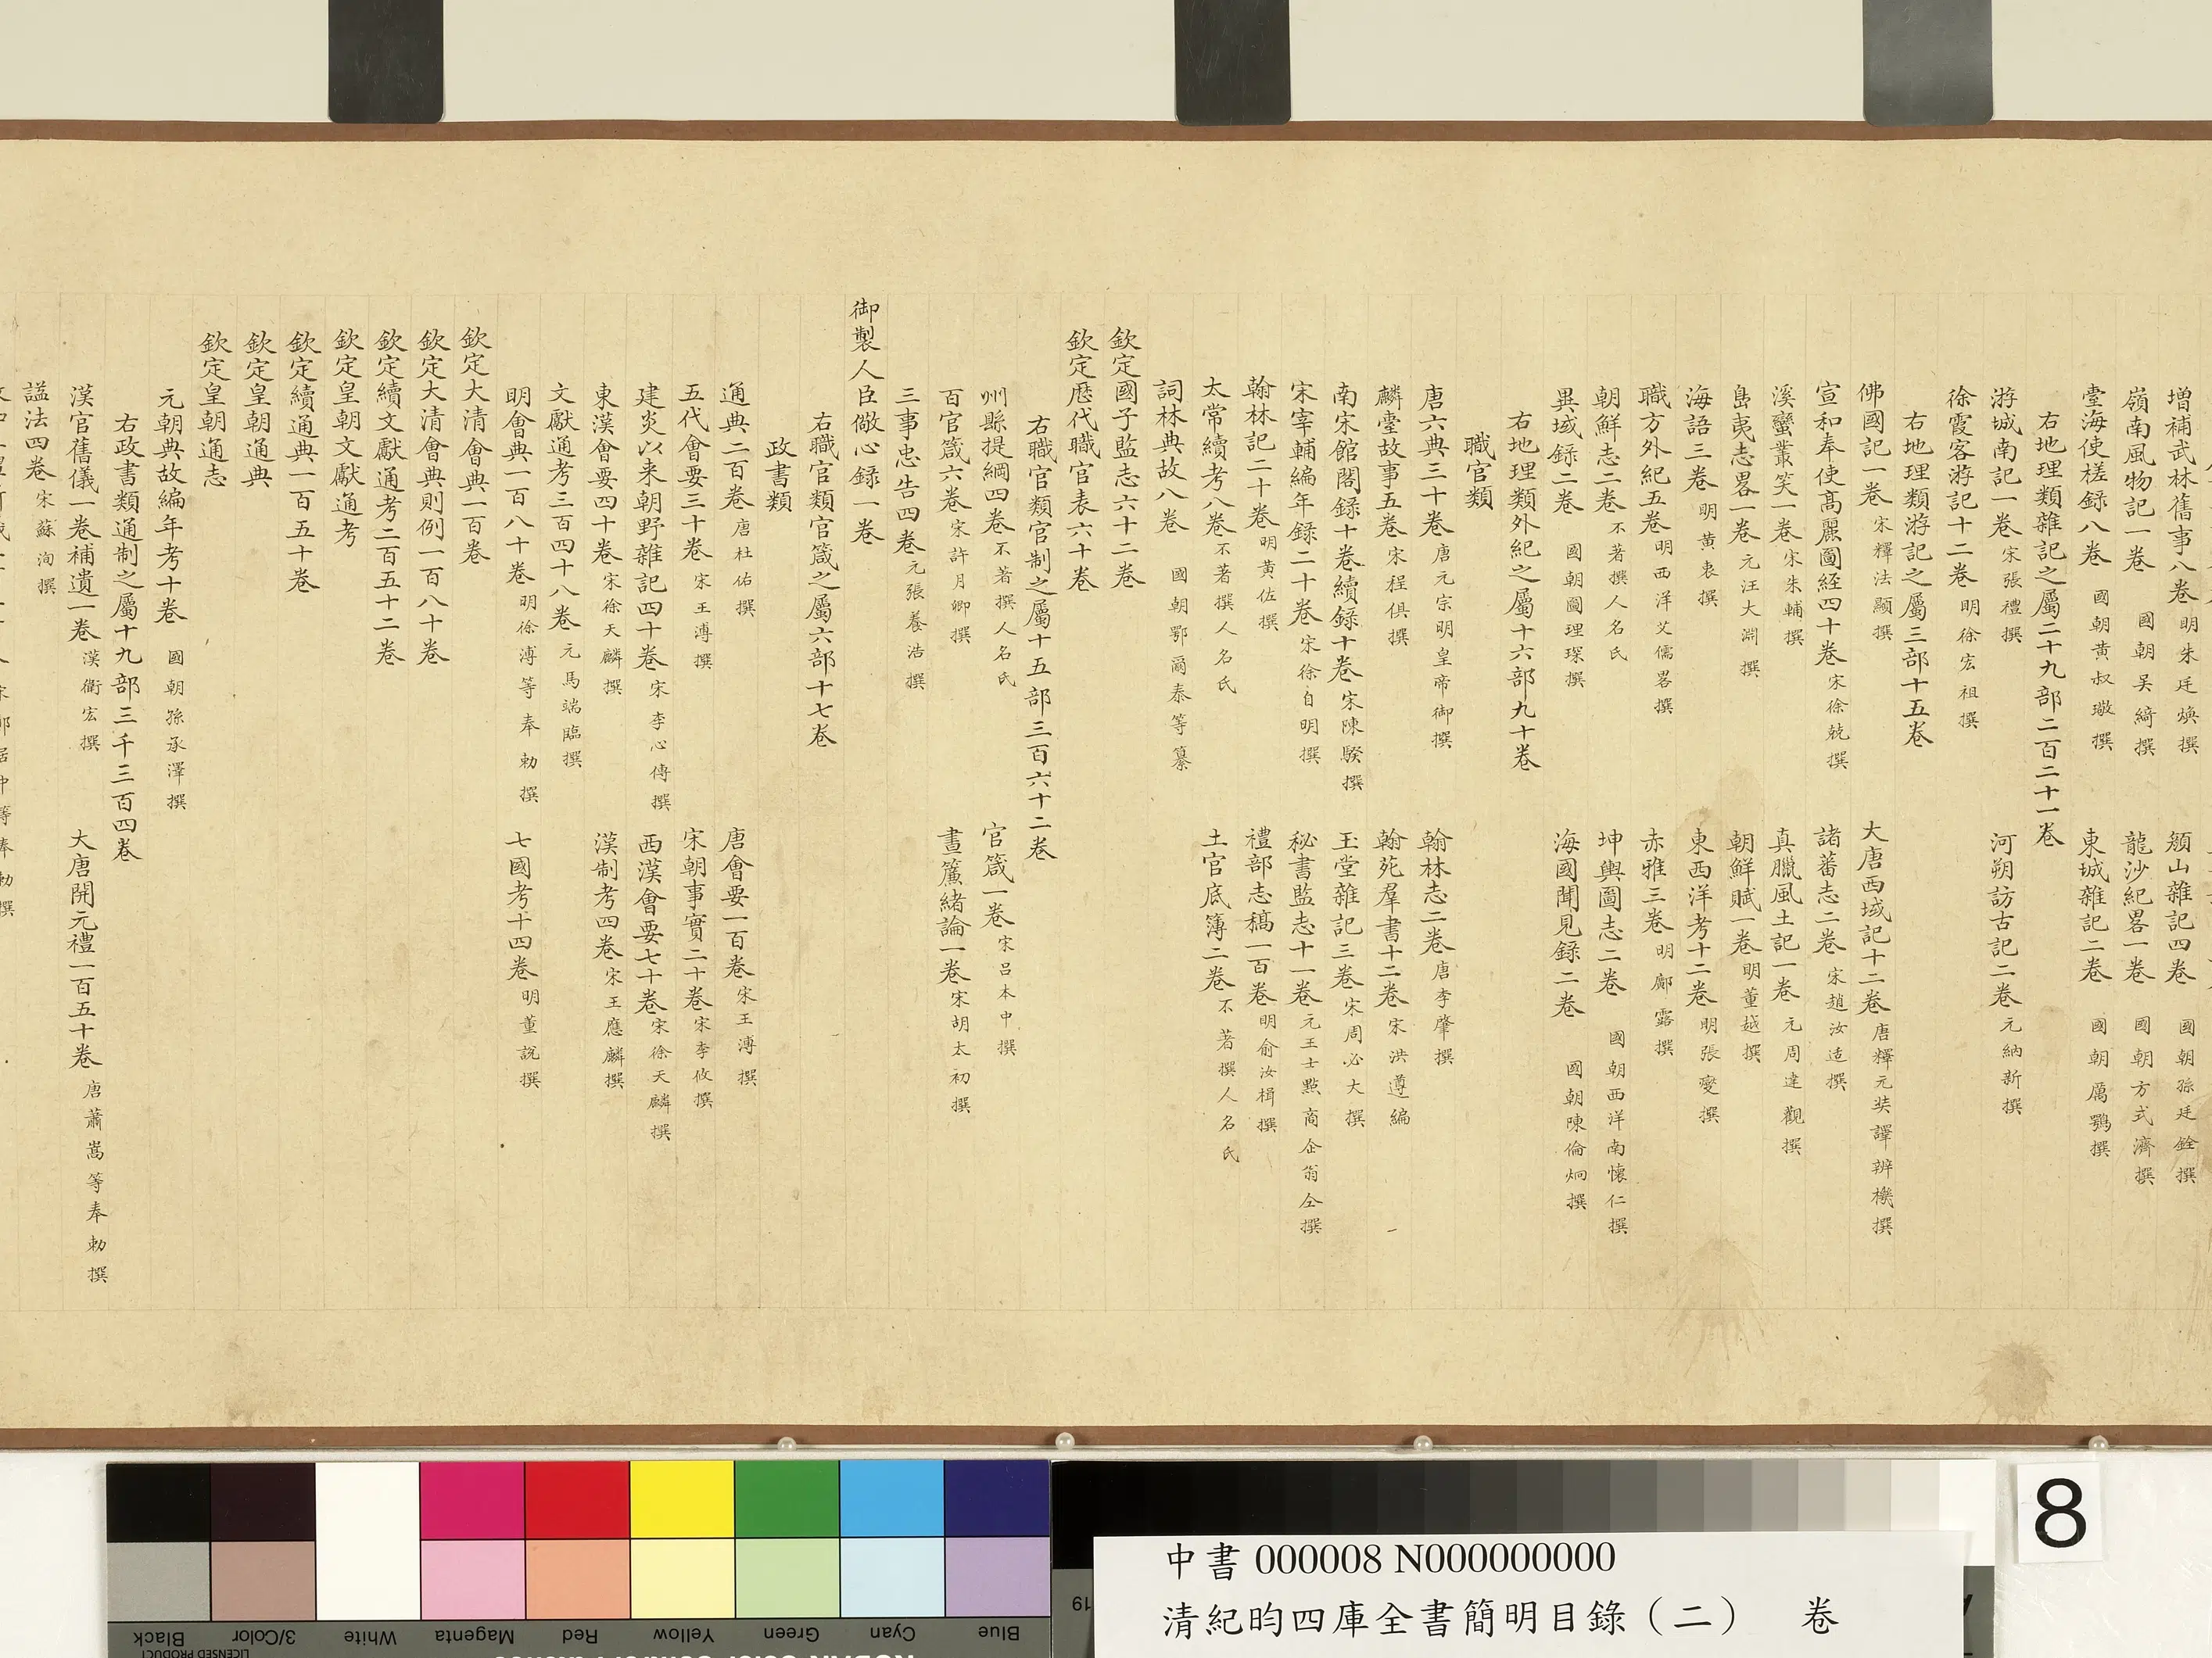 增補武林舊事八卷 明朱廷煥撰 顏山雜記四卷 國朝孫廷銓撰
嶺南風物記一卷 國朝吴綺撰 龍沙紀畧一卷 國朝方式濟撰
臺海使槎録八卷 國朝黄叔璥撰 東城雜記二卷 國朝厲鶚撰
右地理類雜記之屬二十九部二百二十一卷
游城南記一卷 宋張禮撰 河朔訪古記二卷 元納新撰
徐霞客游記十二卷 明徐宏祖撰
右地理類游記之屬三部十五卷
佛國記一卷 宋釋法顯撰 大唐西域記十二卷 唐釋元奘譯辨機撰
宣和奉使髙麗圖經四十卷 宋徐兢撰 諸蕃志二卷 宋趙汝适撰
溪蠻叢笑一卷 宋朱輔撰 真臘風土記一卷 元周達觀撰
島夷志畧一卷 元汪大淵撰 朝鮮賦一卷 明董越撰
海語三卷 明黄衷撰 東西洋考十二卷 明張燮撰
職方外紀五卷 明西洋艾儒畧撰 赤雅三卷 明鄺露撰
朝鮮志二卷 不著撰人名氏 坤輿圖志二卷 國朝西洋南懷仁撰
異域録二卷 國朝圖理琛撰 海國聞見録二卷 國朝陳倫炯撰
右地理類外紀之屬十六部九十卷
職官類
唐六典三十卷 唐元宗明皇帝御撰 翰林志二卷 唐李肇撰
麟臺故事五卷 宋程俱撰 翰苑羣書十二卷 宋洪遵編
南宋館閣録十卷續録十卷 宋陳騤撰 玉堂雜記三卷 宋周必大撰
宋宰輔編年録二十卷 宋徐自明撰 秘書監志十一卷 元王士點商企翁仝撰
翰林記二十卷 明黄佐撰 禮部志稿一百卷 明俞汝楫撰
太常續考八卷 不著撰人名氏 土官底簿二卷 不著撰人名氏
詞林典故八卷 國朝鄂爾泰等纂
欽定國子監志六十二卷
欽定歷代職官表六十卷
右職官類官制之屬十五部三百六十二卷
州縣提綱四卷 不著撰人名氏 官箴一卷 宋吕本中撰
百官箴六卷 宋許月卿撰 晝簾緒論一卷 宋胡太初撰
三事忠告四卷 元張養浩撰
御製人臣儆心録一卷
右職官類官箴之屬六部十七卷
政書類
通典二百卷 唐杜佑撰 唐會要一百卷 宋王溥撰
五代會要三十卷 宋王溥撰 宋朝事實二十卷 宋李攸撰
建炎以来朝野雜記四十卷 宋李心傳撰 西漢會要七十卷 宋徐天麟撰
東漢會要四十卷 宋徐天麟撰 漢制考四卷 宋王應麟撰
文獻通考三百四十八卷 元馬端臨撰
明會典一百八十卷 明徐溥等奉勅撰 七國考十四卷 明董說撰
欽定大清會典一百卷
欽定大清會典則例一百八十卷
欽定續文獻通考二百五十二卷
欽定皇朝文獻通考
欽定續通典一百五十卷
欽定皇朝通典
欽定皇朝通志
元朝典故編年考十卷 國朝孫承澤撰
右政書類通制之屬十九部三千三百四卷
漢官舊儀一卷補遺一卷 漢衞宏撰 大唐開元禮一百五十卷 唐蕭嵩等奉勅撰
諡法四卷 宋蘇洵撰
8
中書 000008 N000000000
清紀昀四庫全書簡明目錄（二） 卷
Black
3/Color
White
Magenta
Red
Yellow
Green
Cyan
Blue
LICENSED PRODUCT
19